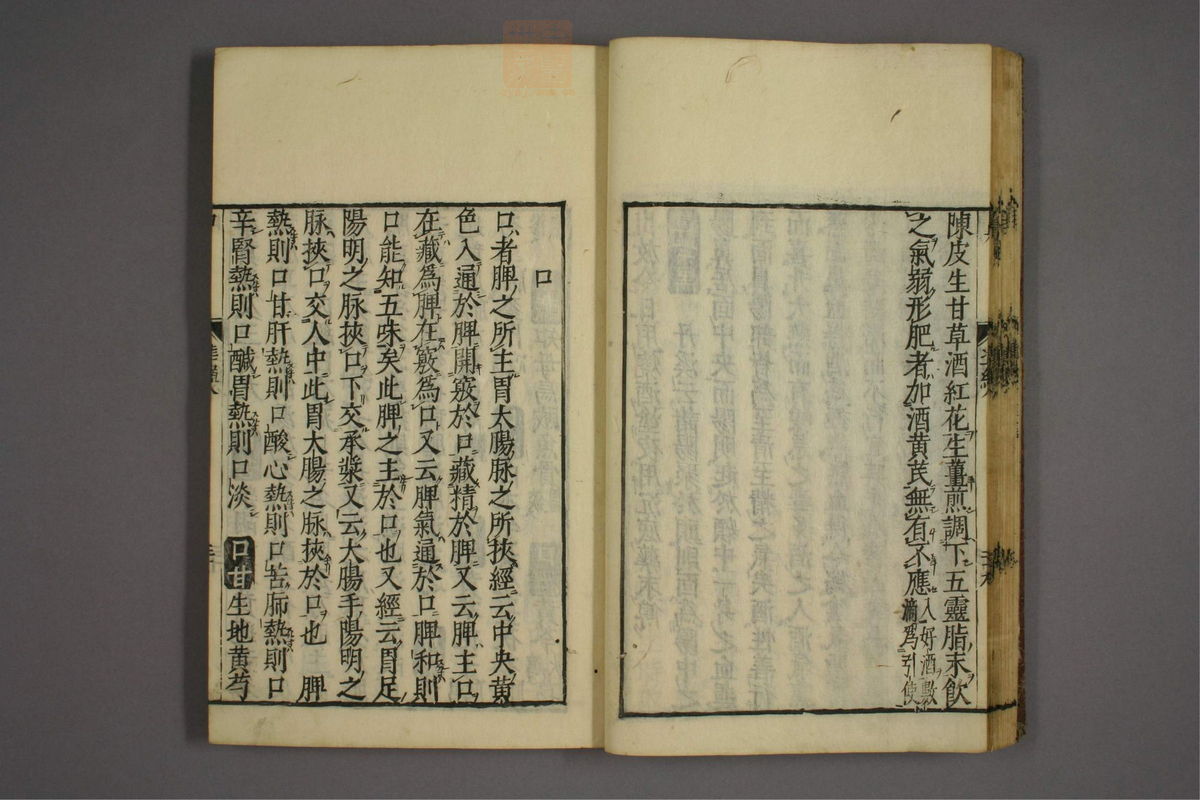 陳皮生甘草酒紅花生薑煎調下五靈脂末飲
之氣弱形肥者加酒黄芪無有不應入好酒數
滴爲引使
口
口者脾之所主胃太腸脉之所挾經云中央黄
色入通於脾開竅於口藏精於脾又云脾主口
在藏爲脾在竅爲口又云脾氣通於口脾和則
口能知五味矣此脾之主於口也又經云胃足
陽明之脉挾口下交承漿又云大腸手陽明之
脉挾口交人中此胃大腸之脉挾於口也　脾
熱則口甘肝熱則口酸心熱則口苦肺熱則口
辛腎熱則口醎胃熱則口淡　口甘生地黄芍